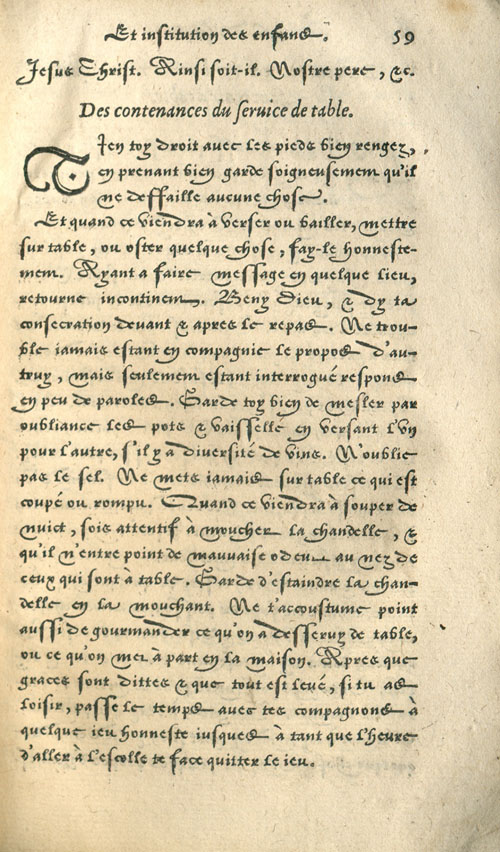 Et institution des enfans. 59
Jesus Christ. Ainsi soit-il. Nostre pere, &c.
Des contenances du seruice de table.
Tien toy droit avec les pieds bien rengez,
en prenant bien garde soigneusement qu'il
ne deffaille aucune chose.
Et quand ce viendra à verser ou bailler, mettre
sur table, ou oster quelque chose, fay-le honneste-
ment. Ayant a faire message en quelque lieu,
retourne incontinent. Beny Dieu, & dy ta
consecration devant & apres le repas. Ne trou-
ble iamais estant en compagnie le propos d'au-
truy, mais seulement estant interrogué respons
en peu de paroles. Garde toy bien de mesler par
oubliance les pots & vaisselle en versant l'vn
pour l'autre, s'il y a diversité de vins. N'oublie
pas le sel. Ne mets iamais sur table ce qui est
coupé ou rompu. Quand ce viendra à souper de
nuict, sois attentif à moucher la chandelle, &
qu'il n'entre point de mauvaise odeur au nez de
ceux qui sont à table. Garde d'estaindre la chan-
delle en la mouchant. Ne t'accoustume point
aussi de gourmander ce qu'on a desservy de table,
ou ce qu'on met à part en la maison. Apres que
graces sont dittes & que tout est levé, si tu as
loisir, passe le temps avec tes compagnons à
quelque ieu honneste iusques à tant que l'heure
d'aller à l'escolle te face quitter le ieu.